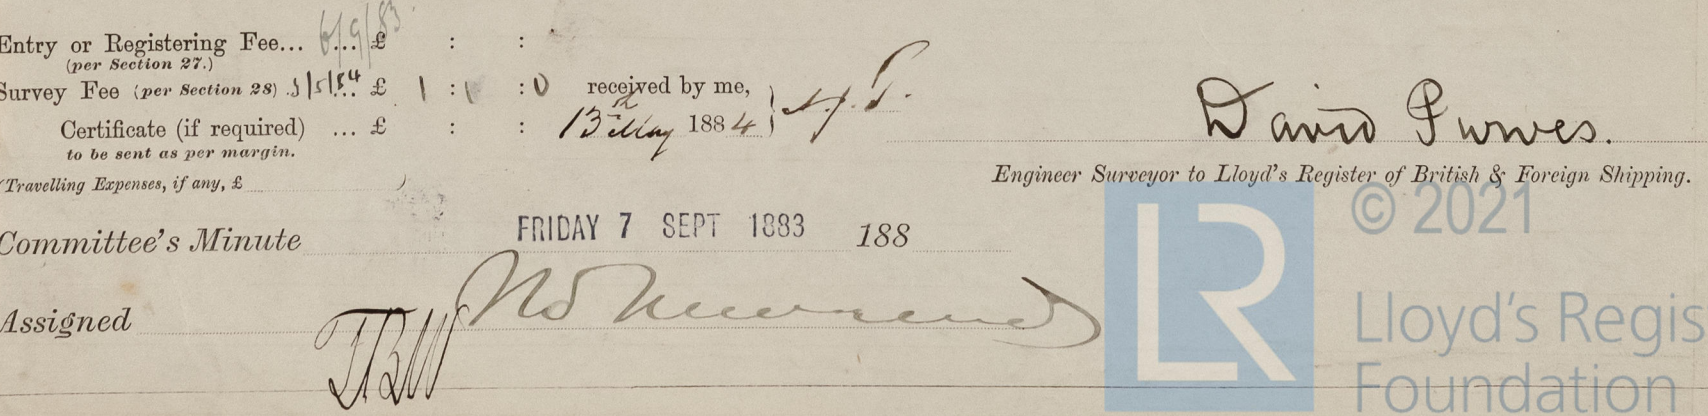 6/9/83
Entry or Registering Fee... ... £ : :
(per Section 27.)
Survey Fee (per Section 28) 3/5/84 ... £ 1 : 1 : 0 received by me,
Certificate (if required) ... £ : : 13th May 1884
to be sent as per margin.
(Travelling Expenses, if any, £ )
David Purves.
Engineer Surveyor to Lloyd's Register of British & Foreign Shipping.
Committee's Minute FRIDAY 7 SEPT 1883 188
Assigned
© 2021
LR
Lloyd's Regis
Foundation